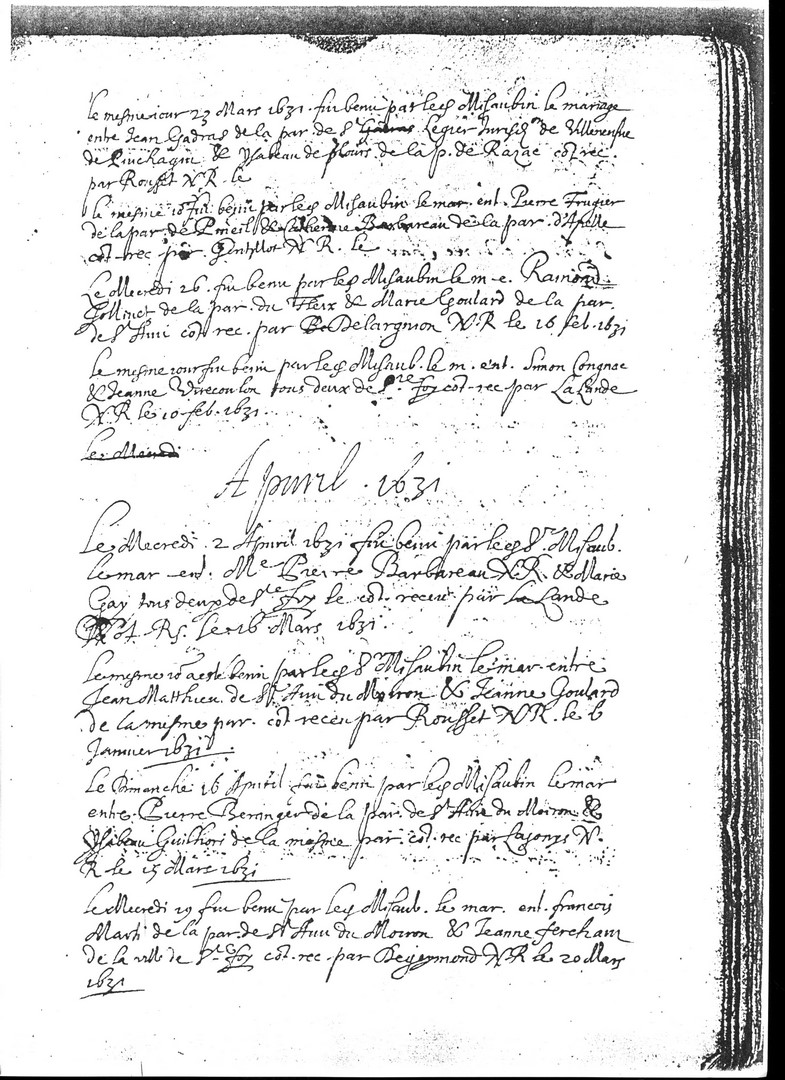 le mesme iour 23 Mars 1631 fut beni par led Misaubin le mariage
entre Jean Gadras de la par. de St Legier de Villeneufve
de & Ysabeau de de la p. de Razac cot. rec.
par Rousset N.R. le
le mesme io. fut beni par led Misaubin le mar. ent. Pierre Frugier
de la par de & Catherine Barbareau de la par. d'Apelle
cot. rec par Gentillot N R. le
Le Mecredi 26. fut beni par led Misaubin le m. e. Raimond
Gollinet de la par. du Fleix & Marie Goulard de la par.
de St Avit cot. rec. par N.R le 16 feb. 1631
le mesme iour fut beni par led Misaub. le m. ent. Simon Congnac
& Jeanne Virecoulon tous deux de Ste Foy cot. rec par La Lande
N.R le 10 feb. 1631
le Mecredi
Apvril . 1631
Le Mecredi 2 Apvril 1631 fut beni par led Sr. Misaub.
le mar ent. Me Pierre Barbareau N.R. & Marie
Gay tous deux de Ste Foy le cot. receu par La Lande
Not. R. le 16 Mars 1631.
Le mesme io a este beni par led Sr Misaubin le mar. entre
Jean Matthieu de St Avit du Moiron & Jeanne Goulard
de la mesme par. cot. receu par Rousset N R. le 6
Janvier 1631
Le Dimanche 16 Apvril fut beni par led Misaubin le mar
entre Pierre Beranger de la par. de St Avit du Moiron &
Ysabeau de la mesme par. cot. rec par N.
R le 15 Mars 1631
Le Mecredi 19 fut beni par led Misaub. le mar. ent. francois
Marti de la par. de St Avit du Moiron & Jeanne
de la ville de Ste Foy cot. rec. par N R le 20 Mars
1631